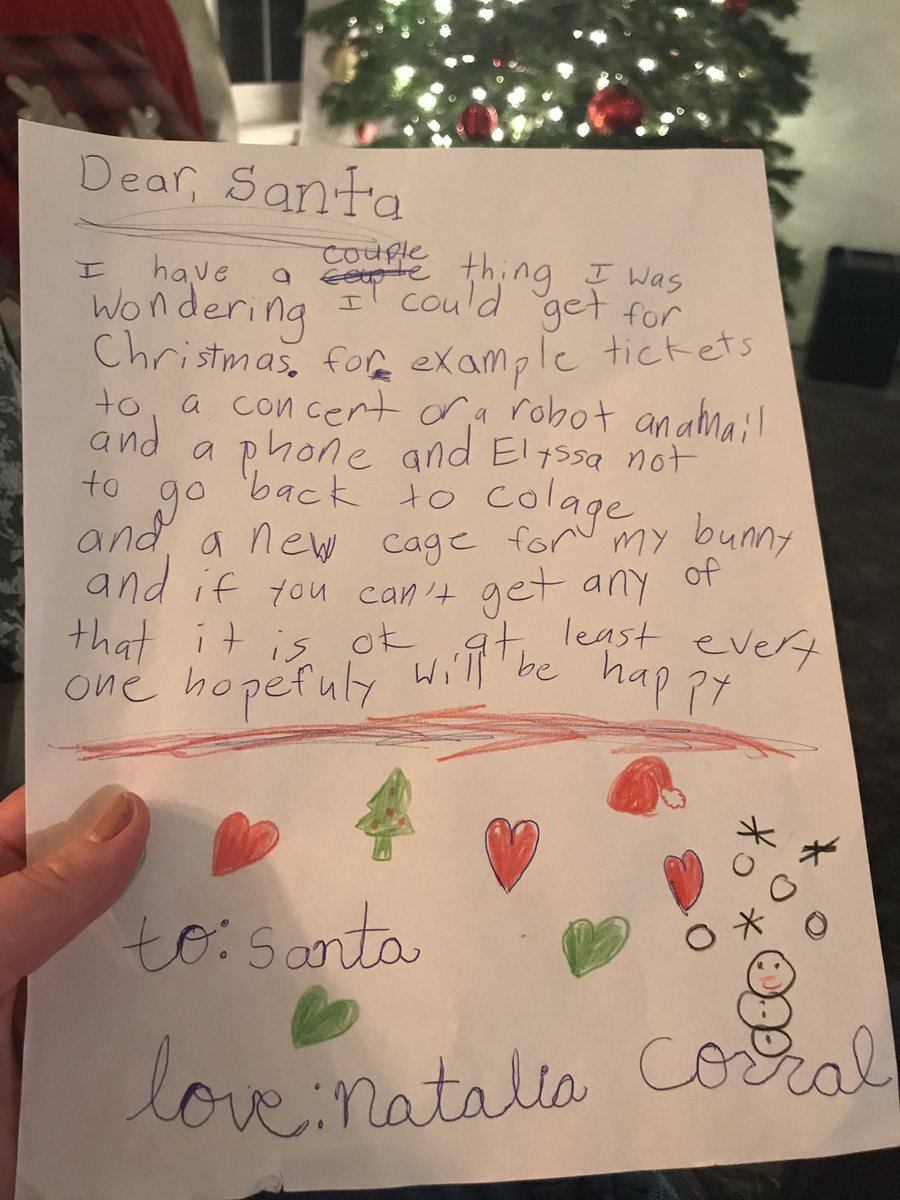 Dear, Santa
I have a couple thing I was
wondering I could get for
Christmas. for example tickets
to a concert or a robot anamail
and a phone and Elyssa not
to go back to colage
and a new cage for my bunny
and if you can't get any of
that it is ok at least every
one hopefuly will be happy
to: santa
love: natalia Corral